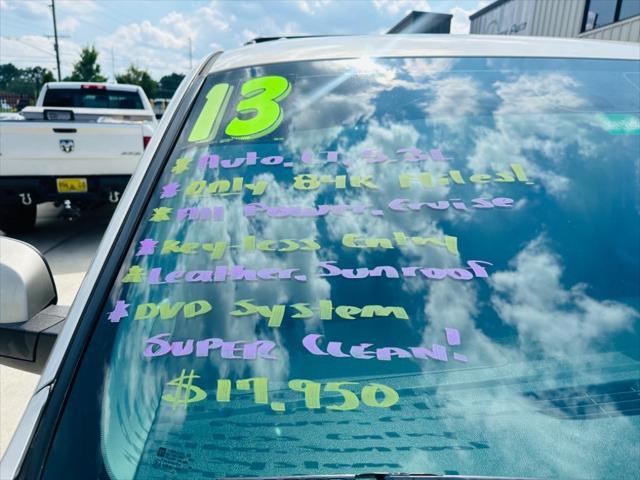 13
* Auto, LT, 5.3L
* Only 84K Miles!
* All Power, Cruise
* Key-less Entry
* Leather, Sunroof
* DVD System
Super Clean!
$17,950